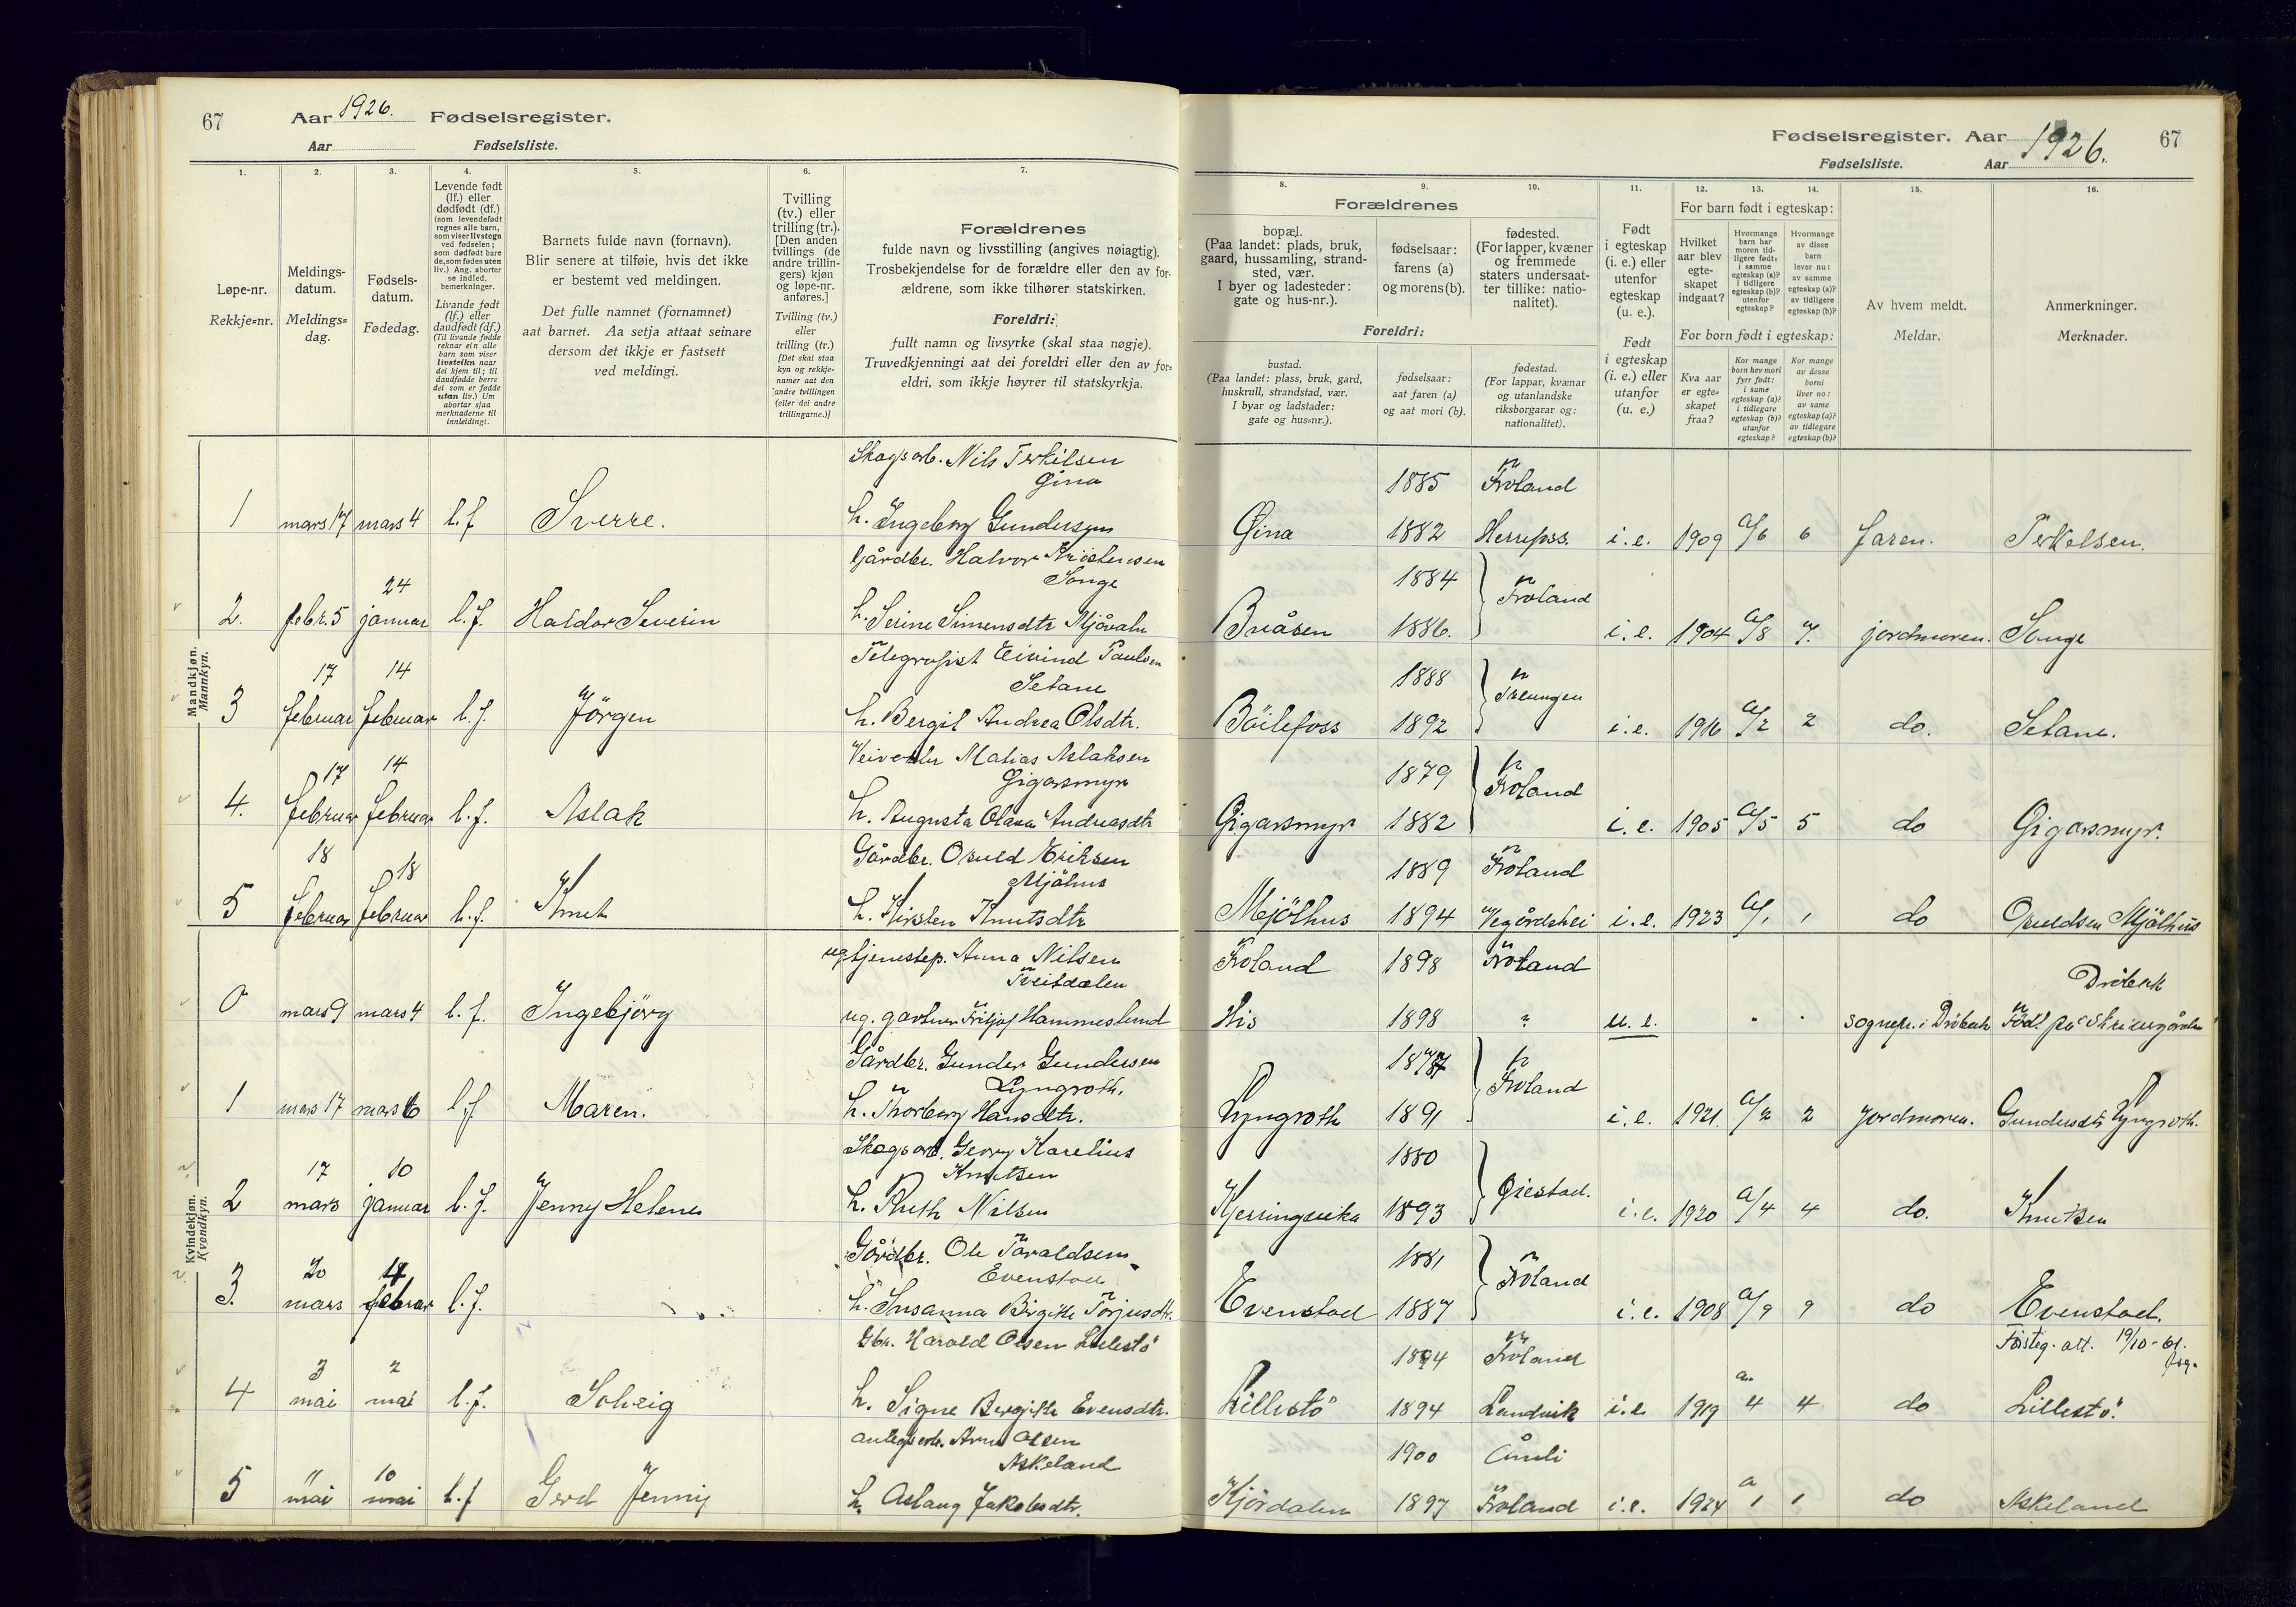 67 Aar 1926. Fødselsregister.
Aar Fødselsliste.
1. 2. 3. 4. 5. 6. 7.
Løpe-nr.
Rekkje=nr.
Meldings-
datum.
Meldings=
dag.
Fødsels-
datum.
Fødedag.
Levende født
(lf.) eller
dødfødt (df.)
(som levendefødt
regnes alle barn,
som viser livstegn
ved fødselen;
som dødfødt bare
de, som fødes uten
liv.) Ang. aborter
se indled.
bemerkninger.
Livande født
(lf.) eller
daudfødt (df.)
(Til livande fødde
reknar ein alle
barn som viser
livsteikn naar
dei kjem til; til
daudfødde berre
dei som er fødde
utan liv.) Um
abortar sjaa
merknaderne til
innleidingi.
Barnets fulde navn (fornavn).
Blir senere at tilføie, hvis det ikke
er bestemt ved meldingen.
Det fulle namnet (fornamnet)
aat barnet. Aa setja attaat seinare
dersom det ikkje er fastsett
ved meldingi.
Tvilling
(tv.) eller
trilling (tr.).
[Den anden
tvillings (de
andre trillin-
gers) kjøn
og løpe-nr.
anføres.]
Tvilling (tv.)
eller
trilling (tr.)
[Det skal staa
kyn og rekkje-
numer aat den
andre tvillingen
(eller dei andre
trillingarne.)]
Forældrenes
fulde navn og livsstilling (angives nøiagtig).
Trosbekjendelse for de forældre eller den av for-
ældrene, som ikke tilhører statskirken.
Foreldri:
fullt namn og livsyrke (skal staa nøgje).
Truvedkjenningi aat dei foreldri eller den av for=
eldri, som ikkje høyrer til statskyrkja.
Mandkjøn.
Mannkyn.
Skogsarb. Nils Terkilsen
Gina
1 mars 17 mars 4 l.f Sverre. h. Ingeborg Gundersen
Gårdbr. Halvor Kristensen
Songe
24
2. febr. 5 januar l.f. Haldor Severin h. Serine Simensdtr Mjåvatn
Telegrafist Eivind Paulsen
17 14 Setane
3 februar februar l.f. Jörgen h. Bergit Andrea Olsdtr.
Matias Aslaksen
17 14 Gigarsmyr
4. februar februar l.f. Aslak h. Augusta Olava Andreasdtr
18 Gårdbr. Osuld Eriksen
18 Mjålhus
5 februar februar l.f. Knut h. Kirsten Knutsdtr
Kvindekjøn.
Kvendkyn.
ug. tjenestep. Anna Nilsen
Tveitdalen
0 mars 9 mars 4 l.f. Ingebjörg ug. gartner Fritjof Hammeslund
Gårdbr. Gunder Gundersen
Lyngroth.
1 mars 17 mars 6 l.f Maren. h. Thorborg Hansdtr.
Skogsarb. Georg Karelius
17 10 Knutsen
2 mars januar l.f. Jenny Helene h. Ruth Nilsen
Gårdbr. Ole Taraldsen
20 14 Evenstad
3. mars februar l.f. h. Susanna Birgitte Torjusdtr.
Gbr. Harald Olsen Lillestö
3 2
4 mai mai l.f. Solveig h. Signe Bergitte Evensdtr.
Anlegsarb. Arne Olsen
11 10 Askeland
5 mai mai l.f Gerd Jenny h. Aslaug Jakobsdtr.
Fødselsregister. Aar 1926. 67
Fødselsliste. Aar
8. 9. 10. 11. 12. 13. 14. 15. 16.
Forældrenes
bopæl.
(Paa landet: plads, bruk,
gaard, hussamling, strand-
sted, vær.
I byer og ladesteder:
gate og hus-nr.).
fødselsaar:
farens (a)
og morens (b).
fødested.
(For lapper, kvæner
og fremmede
staters undersaat-
ter tillike: natio-
nalitet).
Foreldri:
bustad.
(Paa landet: plass, bruk, gard,
huskrull, strandstad, vær.
I byar og ladstader:
gate og hus=nr.).
fødselsaar:
aat faren (a)
og aat mori (b).
fødestad.
(For lappar, kvænar
og utanlandske
riksborgarar og:
nationalitet).
Født
i egteskap
(i. e.) eller
utenfor
egteskap
(u. e.).
Født
i egteskap
(i. e.) eller
utanfor
(u. e.)
For barn født i egteskap:
Hvilket
aar blev
egte-
skapet
indgaat?
Hvormange
barn har
moren tid-
ligere født:
i samme
egteskap (a)?
i tidligere
egteskap (b)?
utenfor
egteskap?
Hvormange
av disse
barn
lever nu:
av samme
egteskap (a)?
av tidligere
egteskap (b)?
For born født i egteskap:
Kva aar
er egte=
skapet
fraa?
Kor mange
born hev mori
fyrr født:
i same
egteskap (a)?
i tidlegare
egteskap (b)?
utanfor
egteskap?
Kor mange
av desse
borni
liver no:
av same
egteskap (a)?
av tidlegare
egteskap (b)?
Av hvem meldt.
Meldar.
Anmerkninger.
Merknader.
1885 Froland
Gina 1882 Herefoss. i.e. 1909 a/6 6 faren. Terkelsen.
1884 Froland
Bråsen 1886. i.e. 1904 a/8 7. jordmoren. Songe
1888 Treungen
Böilefoss 1892 i.e. 1916 a/2 2 do. Setane.
1879 Froland
Gigarsmyr 1882 i.e. 1905 a/5 5 do Gigarsmyr.
1889 Froland
Mjölhus 1894 Vegårdshei i.e. 1923 a/1 1 do Osuldsen Mjölhus
Froland 1898 Froland
Dröbak
His 1898 " u.e. " " sognepr. i Dröbak Född på
1877 Froland
Lyngroth 1891 i.e. 1921. a/2 2 Jordmoren. Gundersdtr Lyngroth.
1880 Gjestad.
Kjerringvika 1893 i.e. 1920 a/4 4 do. Knutsen
1881 Froland
Evenstad 1887 i.e. 1908 a/9 9 do Evenstad.
1894 Froland Fødseg. att. 19/10-61.
Lillestö 1894 Landvik i.e. 1919 a 4 4 do Lillestö.
1900 Åmli
Kjördalen 1897 Froland i.e. 1924 a 1 1 do Askeland